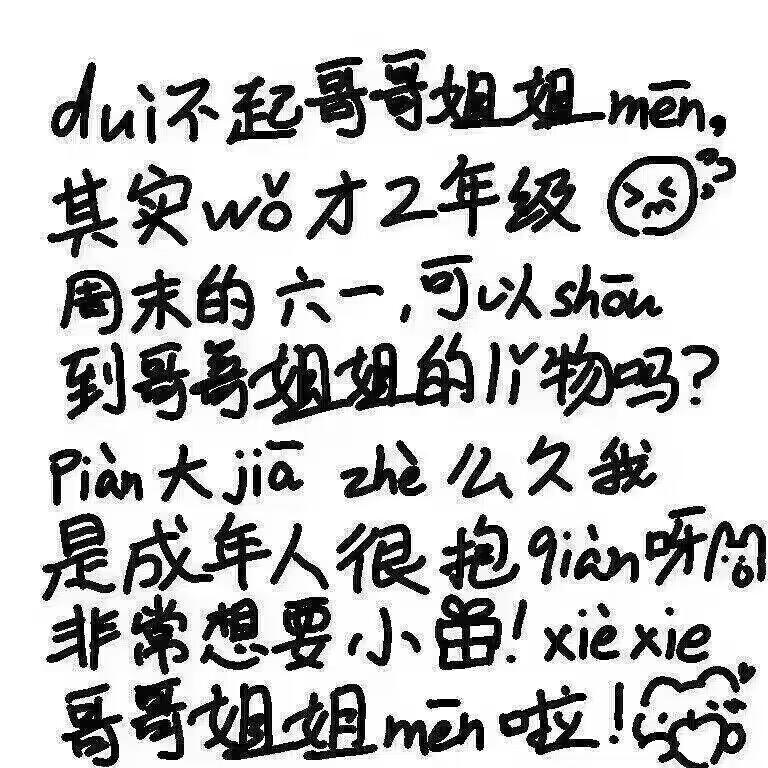 duì不起哥哥姐姐mēn,
其实wǒ才2年级
周末的六一,可以shōu
到哥哥姐姐的lǐ物吗?
Piàn大jiā zhè么久我
是成年人很抱qiàn呀
非常想要小!xièxie
哥哥姐姐mēn啦!